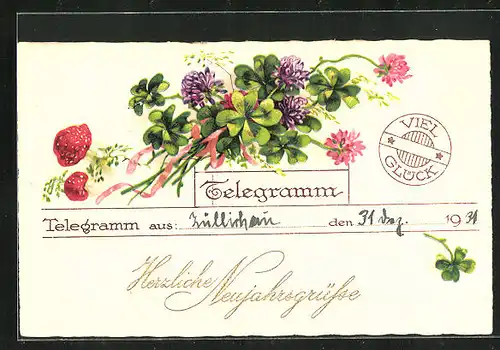 VIEL
GLÜCK
Telegramm
Telegramm aus: Züllichau den 31 Dez. 1931
Herzliche
Neujahrsgrüsse